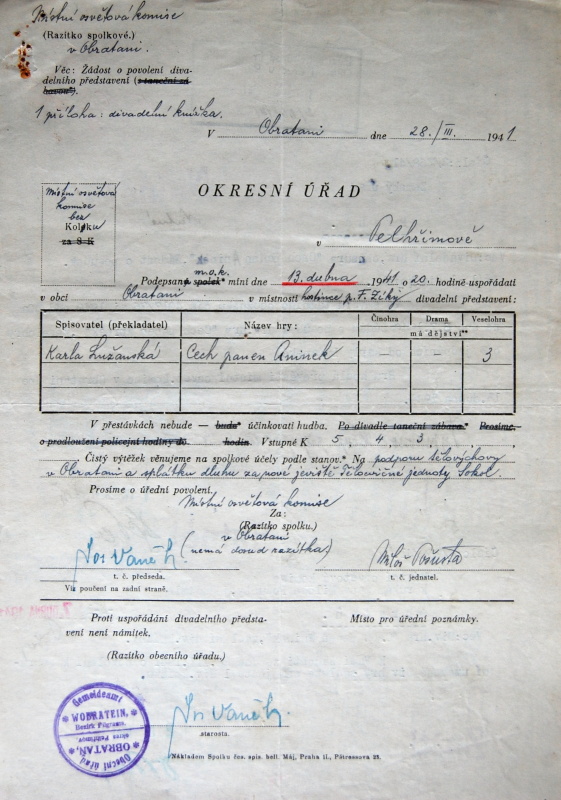 Místní osvětová komise
(Razítko spolkové.)
v Obratani.
Věc: Žádost o povolení diva-
delního představení (a taneční zá-
bavou*).
1 příloha: divadelní knížka.
V Obratani dne 28./III. 1941
Místní osvětová
komise
bez
Kolku
za 8 K
OKRESNÍ ÚŘAD
v Pelhřimově
m.o.k.
Podepsaný spolek* míní dne 13. dubna 1941 o 20. hodině uspořádati
v obci Obratani v místnosti hostince p. F. Ziky divadelní představení:
Spisovatel (překladatel) Název hry: Činohra Drama Veselohra
má dějství**
Karla Lužanská Cech panen Aninek — — 3
V přestávkách nebude — bude* účinkovati hudba. Po divadle taneční zábava.* Prosíme,
o prodloužení policejní hodiny do hodin. Vstupné K 5, 4, 3,
Čistý výtěžek věnujeme na spolkové účely podle stanov.* Na podporu tělovýchovy
v Obratani a splátku dluhu za nové jeviště Tělocvičné jednoty Sokol.
Prosíme o úřední povolení.
Místní osvětová komise
Za:
(Razítko spolku.)
v Obratani
(nemá dosud razítka)
Jos Vaněk Miloš Pošusta
t. č. předseda. t. č. jednatel.
Viz poučení na zadní straně.
Proti uspořádání divadelního předsta-
vení není námitek.
Místo pro úřední poznámky.
(Razítko obecního úřadu.)
Gemeindeamt
WOBRATEIN,
Bezirk Pilgrams
okres Pelhřimov
OBRATAŇ,
Obecní úřad
Jos Vaněk.
starosta.
Nákladem Spolku čes. spis. bell. Máj, Praha II., Pštrossova 23.